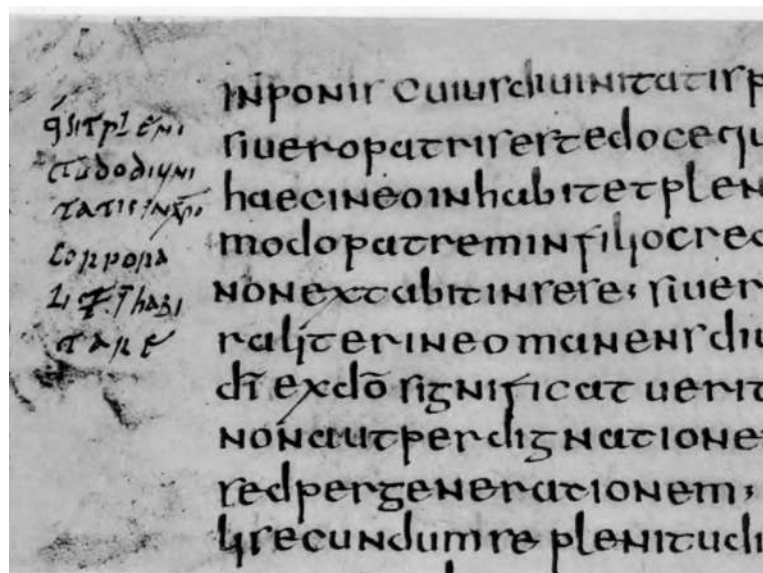 q́ sit pleni
tudo diuini
tatis in xp̄o
corpora
lit̄ īhabi
tare
inponis cuius diuinitatis p
si uero patris est edoce qu
haec in eo inhabitet plen
modo patrem in filio cred
non extabit in sese; si uer
raliter in eo manens diu
dī ex dō significat uerit
non aut per dignatione
sed per generationem;
li secundum se plenitudi